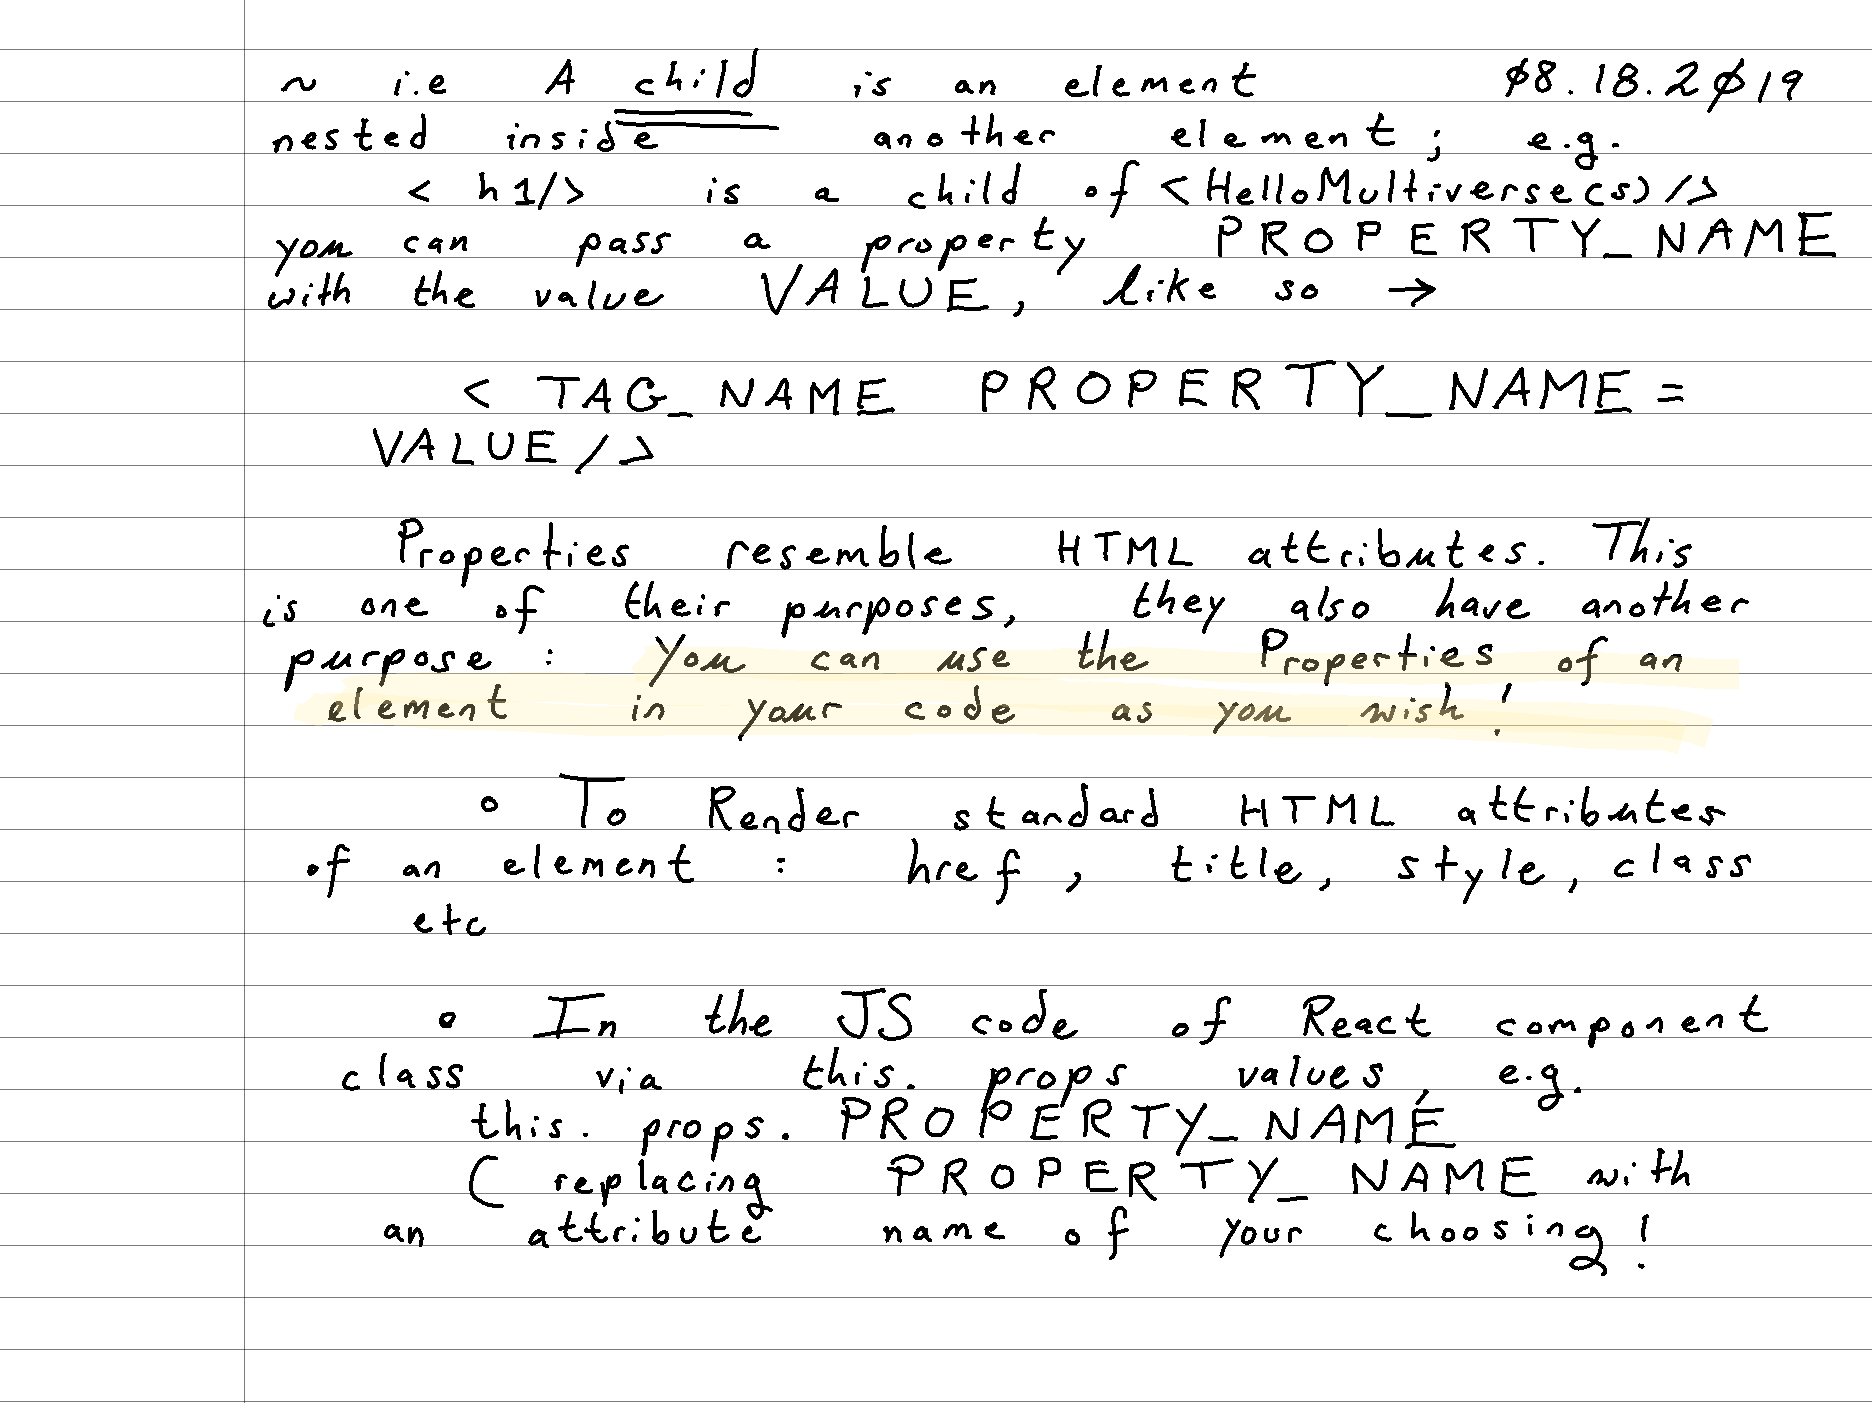 ~ i.e A child is an element 08.18.2019
nested inside another element; e.g.
< h1/> is a child of <HelloMultiverse(s)/>
you can pass a property PROPERTY_NAME
with the value VALUE, like so →
< TAG_NAME PROPERTY_NAME =
VALUE/>
Properties resemble HTML attributes. This
is one of their purposes, they also have another
purpose : You can use the Properties of an
element in your code as you wish!
• To Render standard HTML attributes
of an element : href, title, style, class
etc
• In the JS code of React component
class via this. props values, e.g.
this. props. PROPERTY_NAME
( replacing PROPERTY_NAME with
an attribute name of your choosing!